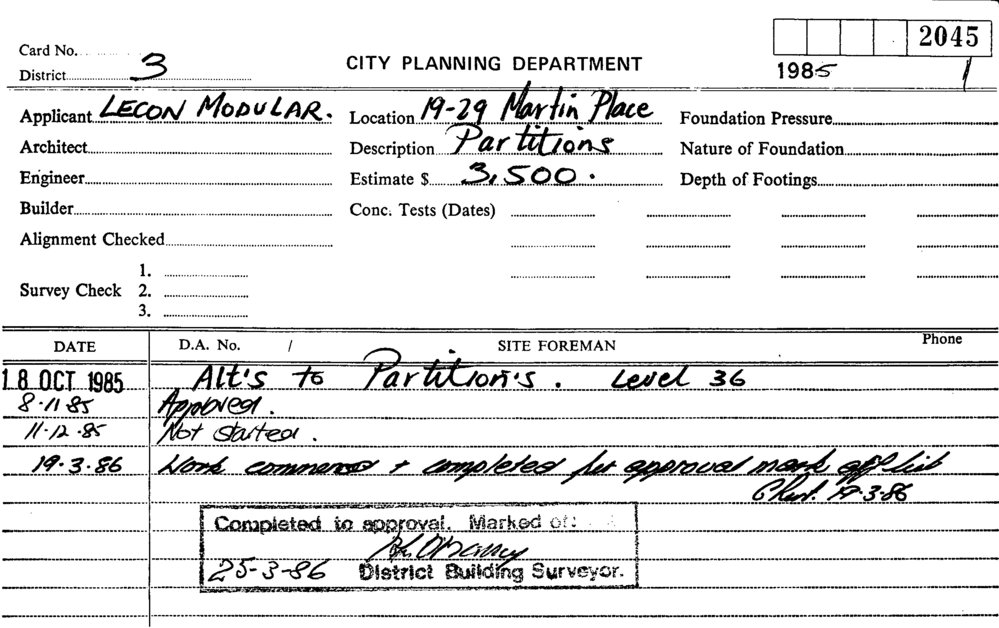 2045
Card No.
District 3
CITY PLANNING DEPARTMENT
1985 1
Applicant LECON MODULAR. Location 19-29 Martin Place Foundation Pressure
Architect Description Partitions Nature of Foundation
Engineer Estimate $ 3,500. Depth of Footings
Builder Conc. Tests (Dates)
Alignment Checked
1.
Survey Check 2.
3.
DATE D.A. No. / SITE FOREMAN Phone
18 OCT 1985 Alt's to Partition's. Level 36
8.11.85 Approved.
11.12.85 Not started.
19.3.86 Work commenced + completed for approval mark off list
19.3.86
Completed to approval. Marked off
25-3-86 District Building Surveyor.